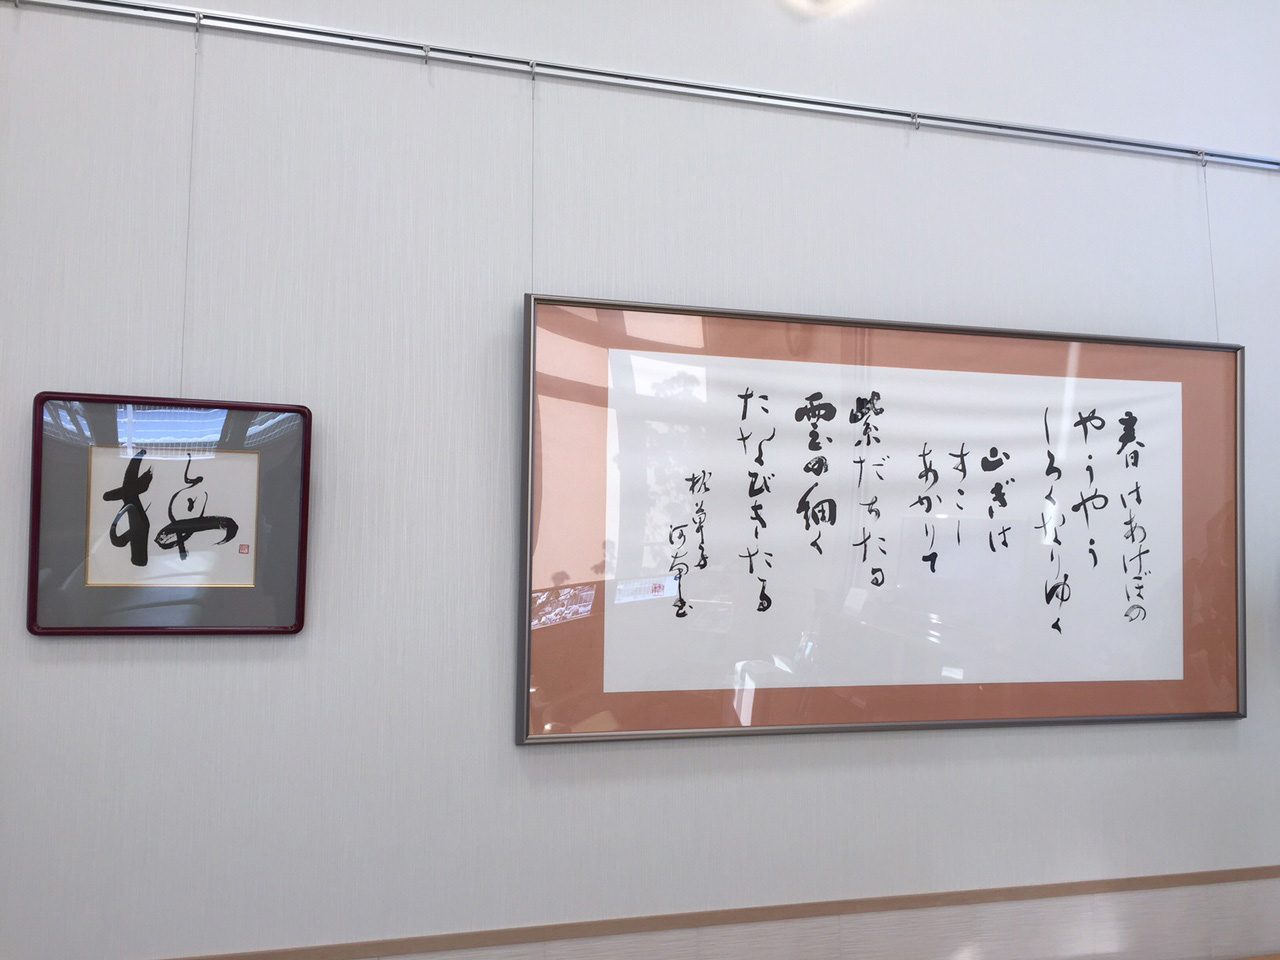 春はあけぼの
やうやう
しろくなりゆく
山ぎは
すこし
あかりて
紫だちたる
雲の細く
たなびきたる
枕草子
梅